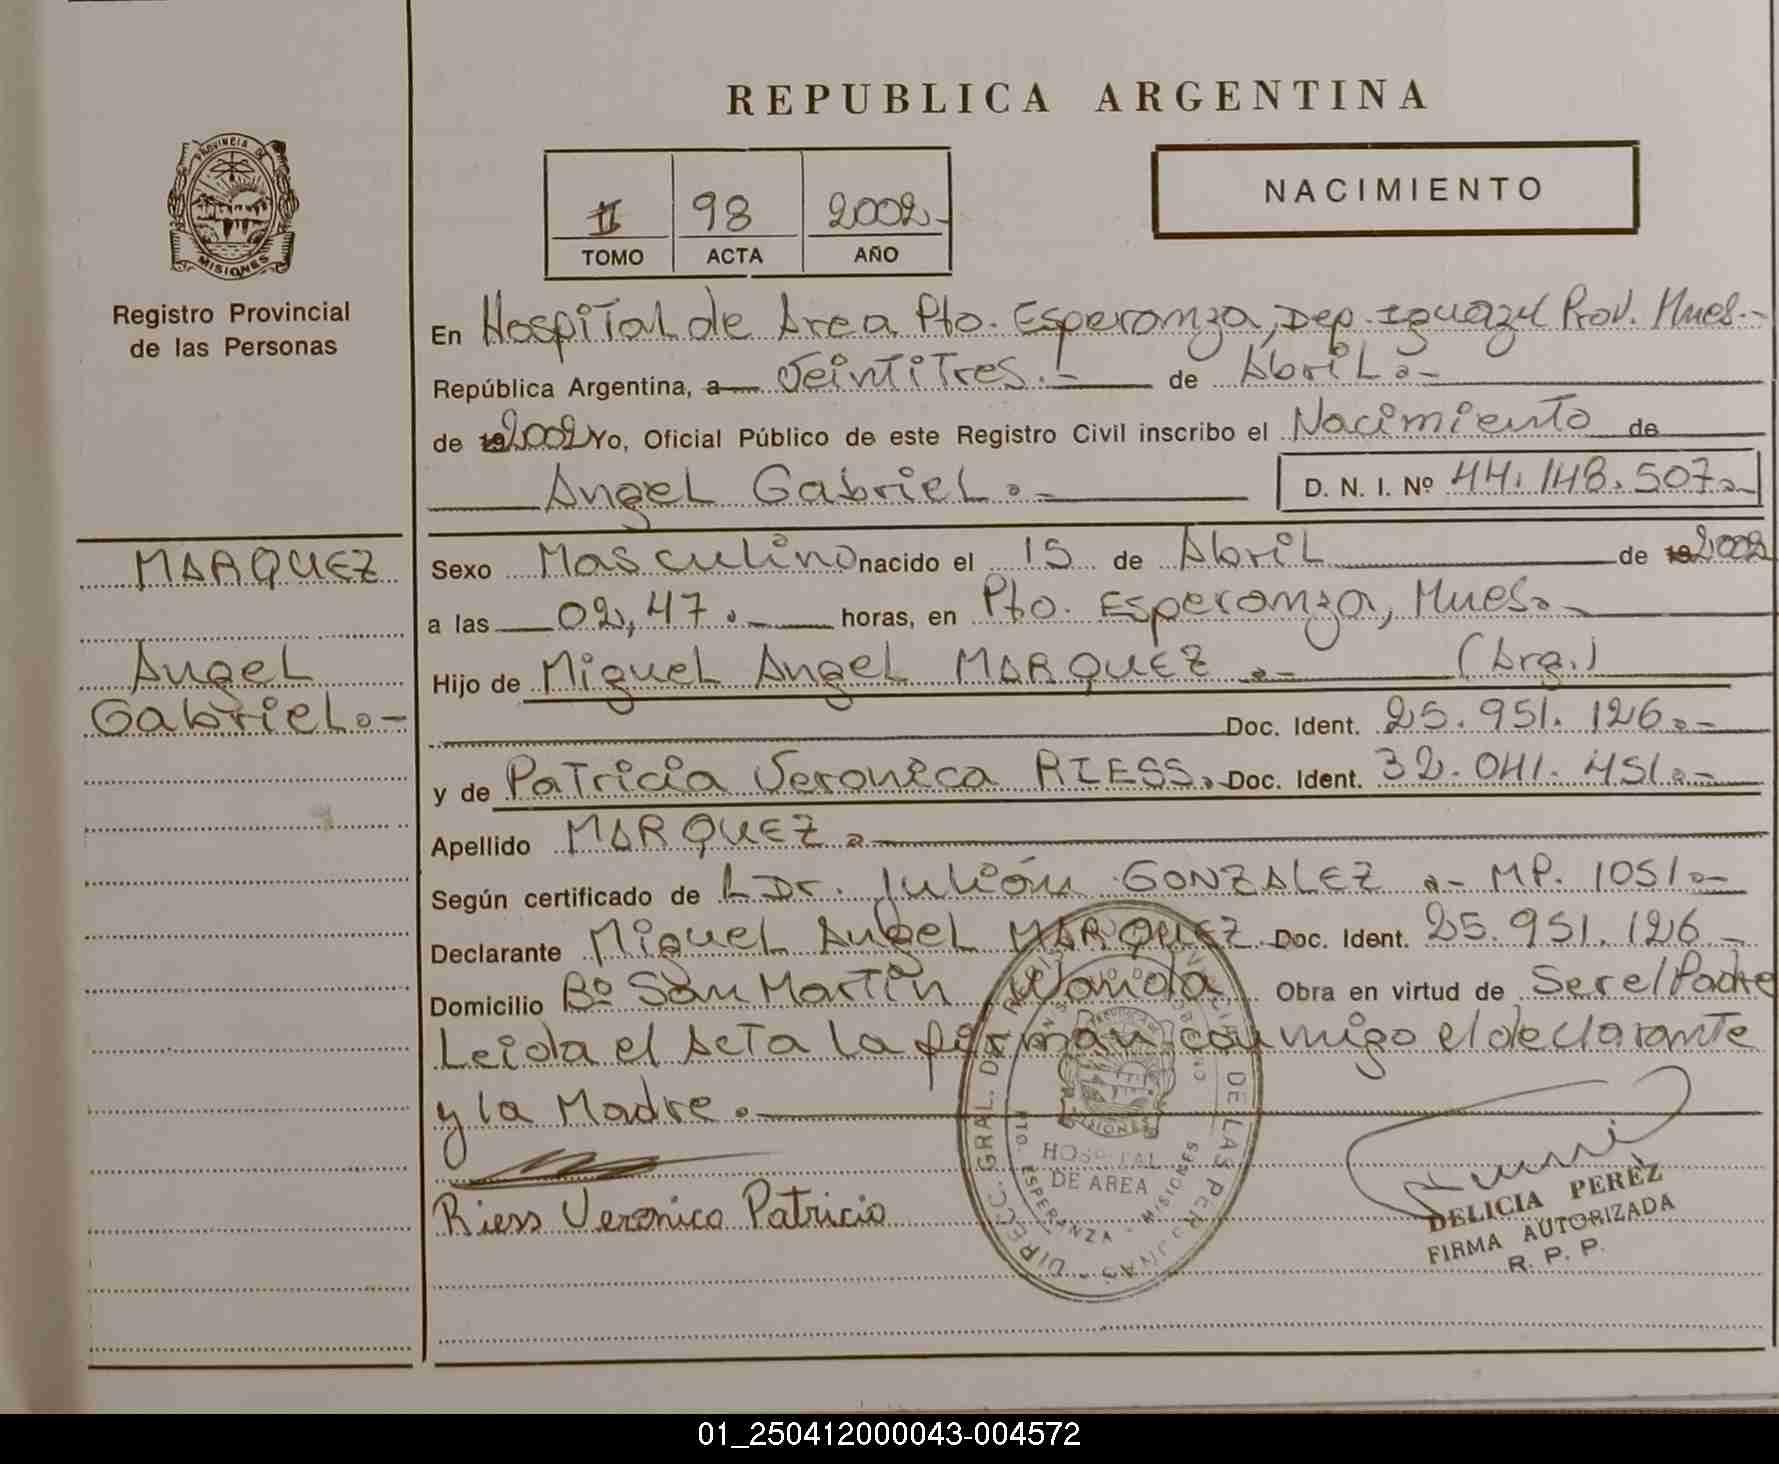 REPUBLICA ARGENTINA
PROVINCIA DE
MISIONES
Registro Provincial
de las Personas
II 98 2002-
TOMO ACTA AÑO
NACIMIENTO
En Hospital de Area Pto. Esperanza, Dep. Iguazu Prov. Mnes.-
República Argentina, a Veintitres.- de Abril.-
de 19 2002 Yo, Oficial Público de este Registro Civil inscribo el Nacimiento de
Angel Gabriel.- D. N. I. Nº 44.148.507.-
MARQUEZ
Angel
Gabriel.-
Sexo Masculino nacido el 15 de Abril de 19 2002
a las 02,47.- horas, en Pto. Esperanza, Mnes.-
Hijo de Miguel Angel MARQUEZ.- (Arg.)
Doc. Ident. 25.951.126.-
y de Patricia Veronica RIESS.- Doc. Ident. 32.041.451.-
Apellido MARQUEZ.-
Según certificado de L Dr. Julión GONZALEZ.- MP. 1051.-
Declarante Miguel Angel MARQUEZ Doc. Ident. 25.951.126-
Domicilio Bº San Martin Wanda Obra en virtud de Ser el Padre
Leida el Acta la firman conmigo el declarante
y la Madre.-
Riess Veronica Patricia
DIRECC. GRAL. DE LAS
HOSPITAL
DE AREA
PTO. ESPERANZA - MISIONES
DELICIA PEREZ
FIRMA AUTORIZADA
R. P. P.
01_250412000043-004572